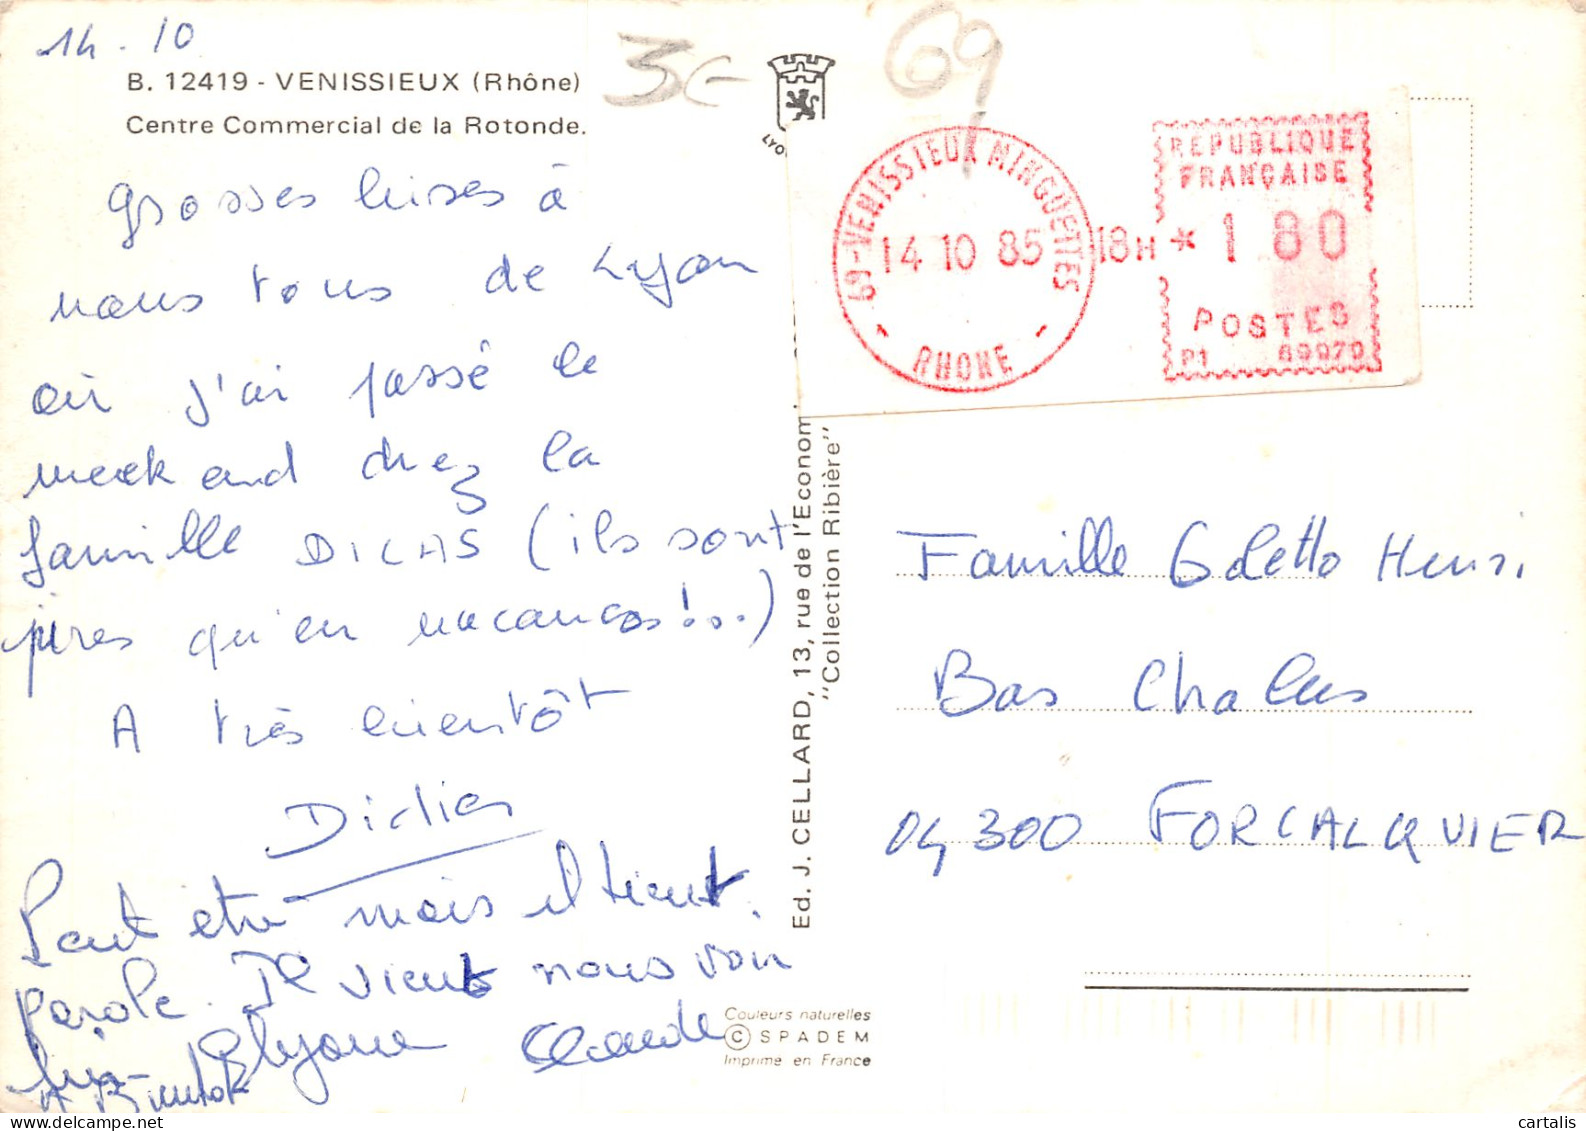 14.10
B. 12419 - VENISSIEUX (Rhône)
Centre Commercial de la Rotonde.
grosses bises à
vous tous de Lyon
où j'ai passé le
week end chez la
famille DICAS (ils sont
pires qu'en vacances!...)
A très bientôt
Didier
Peut etre mais il tient
parole. Il vient nous voir
lui
A Bientot
Claude
3€
69
LYO
69-VENISSIEUX MINGUETTES
14 10 85
RHONE
18H
REPUBLIQUE
FRANÇAISE
* 1 80
POSTES
P1 69970
Ed. J. CELLARD, 13, rue de l'Econom
"Collection Ribière"
Famille Goletto Henri
Bas Chalus
04300 FORCALQUIER
Couleurs naturelles
© SPADEM
Imprimé en France
cartalis